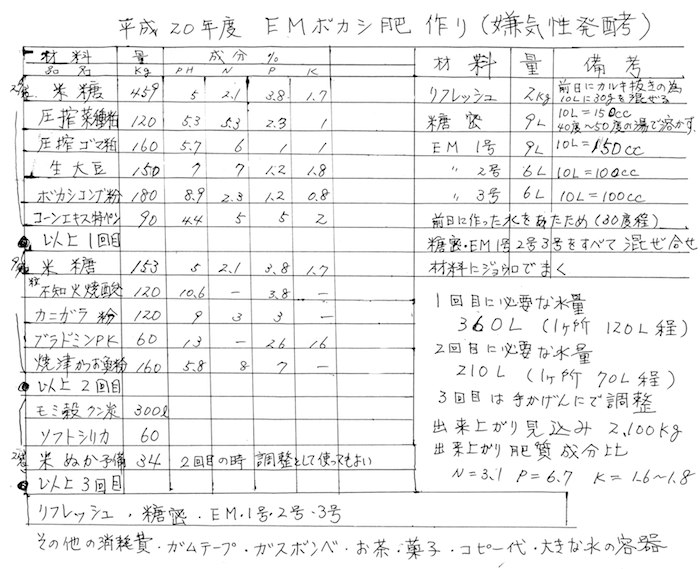 平成20年度 EMボカシ肥 作り(嫌気性発酵)
材料 量 成分 %
品名 Kg PH N P K
米糠 459 5 2.1 3.8 1.7
圧搾菜種粕 120 5.3 5.3 2.3 1
圧搾ゴマ粕 160 5.7 6 1 1
生大豆 150 7 7 1.2 1.8
ボカシコンブ粉 180 8.9 2.3 1.2 0.8
コーンエキス特ペン 90 4.4 5 5 2
以上1回目
米糠 153 5 2.1 3.8 1.7
不知火焼酸 120 10.6 − 3.8 −
カニガラ粉 120 9 3 3 −
ブラドミンPK 60 13 − 26 16
焼津かつお魚粉 160 5.8 8 7 −
以上2回目
モミ殻クン炭 300ℓ
ソフトシリカ 60
米ぬか予備 34 2回目の時 調整として使ってもよい
以上3回目
リフレッシュ・糖密・EM・1号・2号・3号
その他の消耗費・ガムテープ・ガスボンベ・お茶・菓子・コピー代・大きな水の容器
材料 量 備考
リフレッシュ 2kg 前日にカルキ抜きの為
10Lに30gを混ぜる
糖密 9L 10L=150cc
40度〜50度の湯で溶かす
EM 1号 9L 10L=150cc
〃 2号 6L 10L=100cc
〃 3号 6L 10L=100cc
前日に作った水をあたため(30度程)
糖密・EM1号2号3号をすべて混ぜ合せ
材料にジョウロでまく
1回目に必要な水量
360L (1ヶ所 120L程)
2回目に必要な水量
210L (1ヶ所 70L程)
3回目は手かげんにで調整
出来上がり見込み 2,100kg
出来上り肥質成分比
N=3.1 P=6.7 K=1.6〜1.8